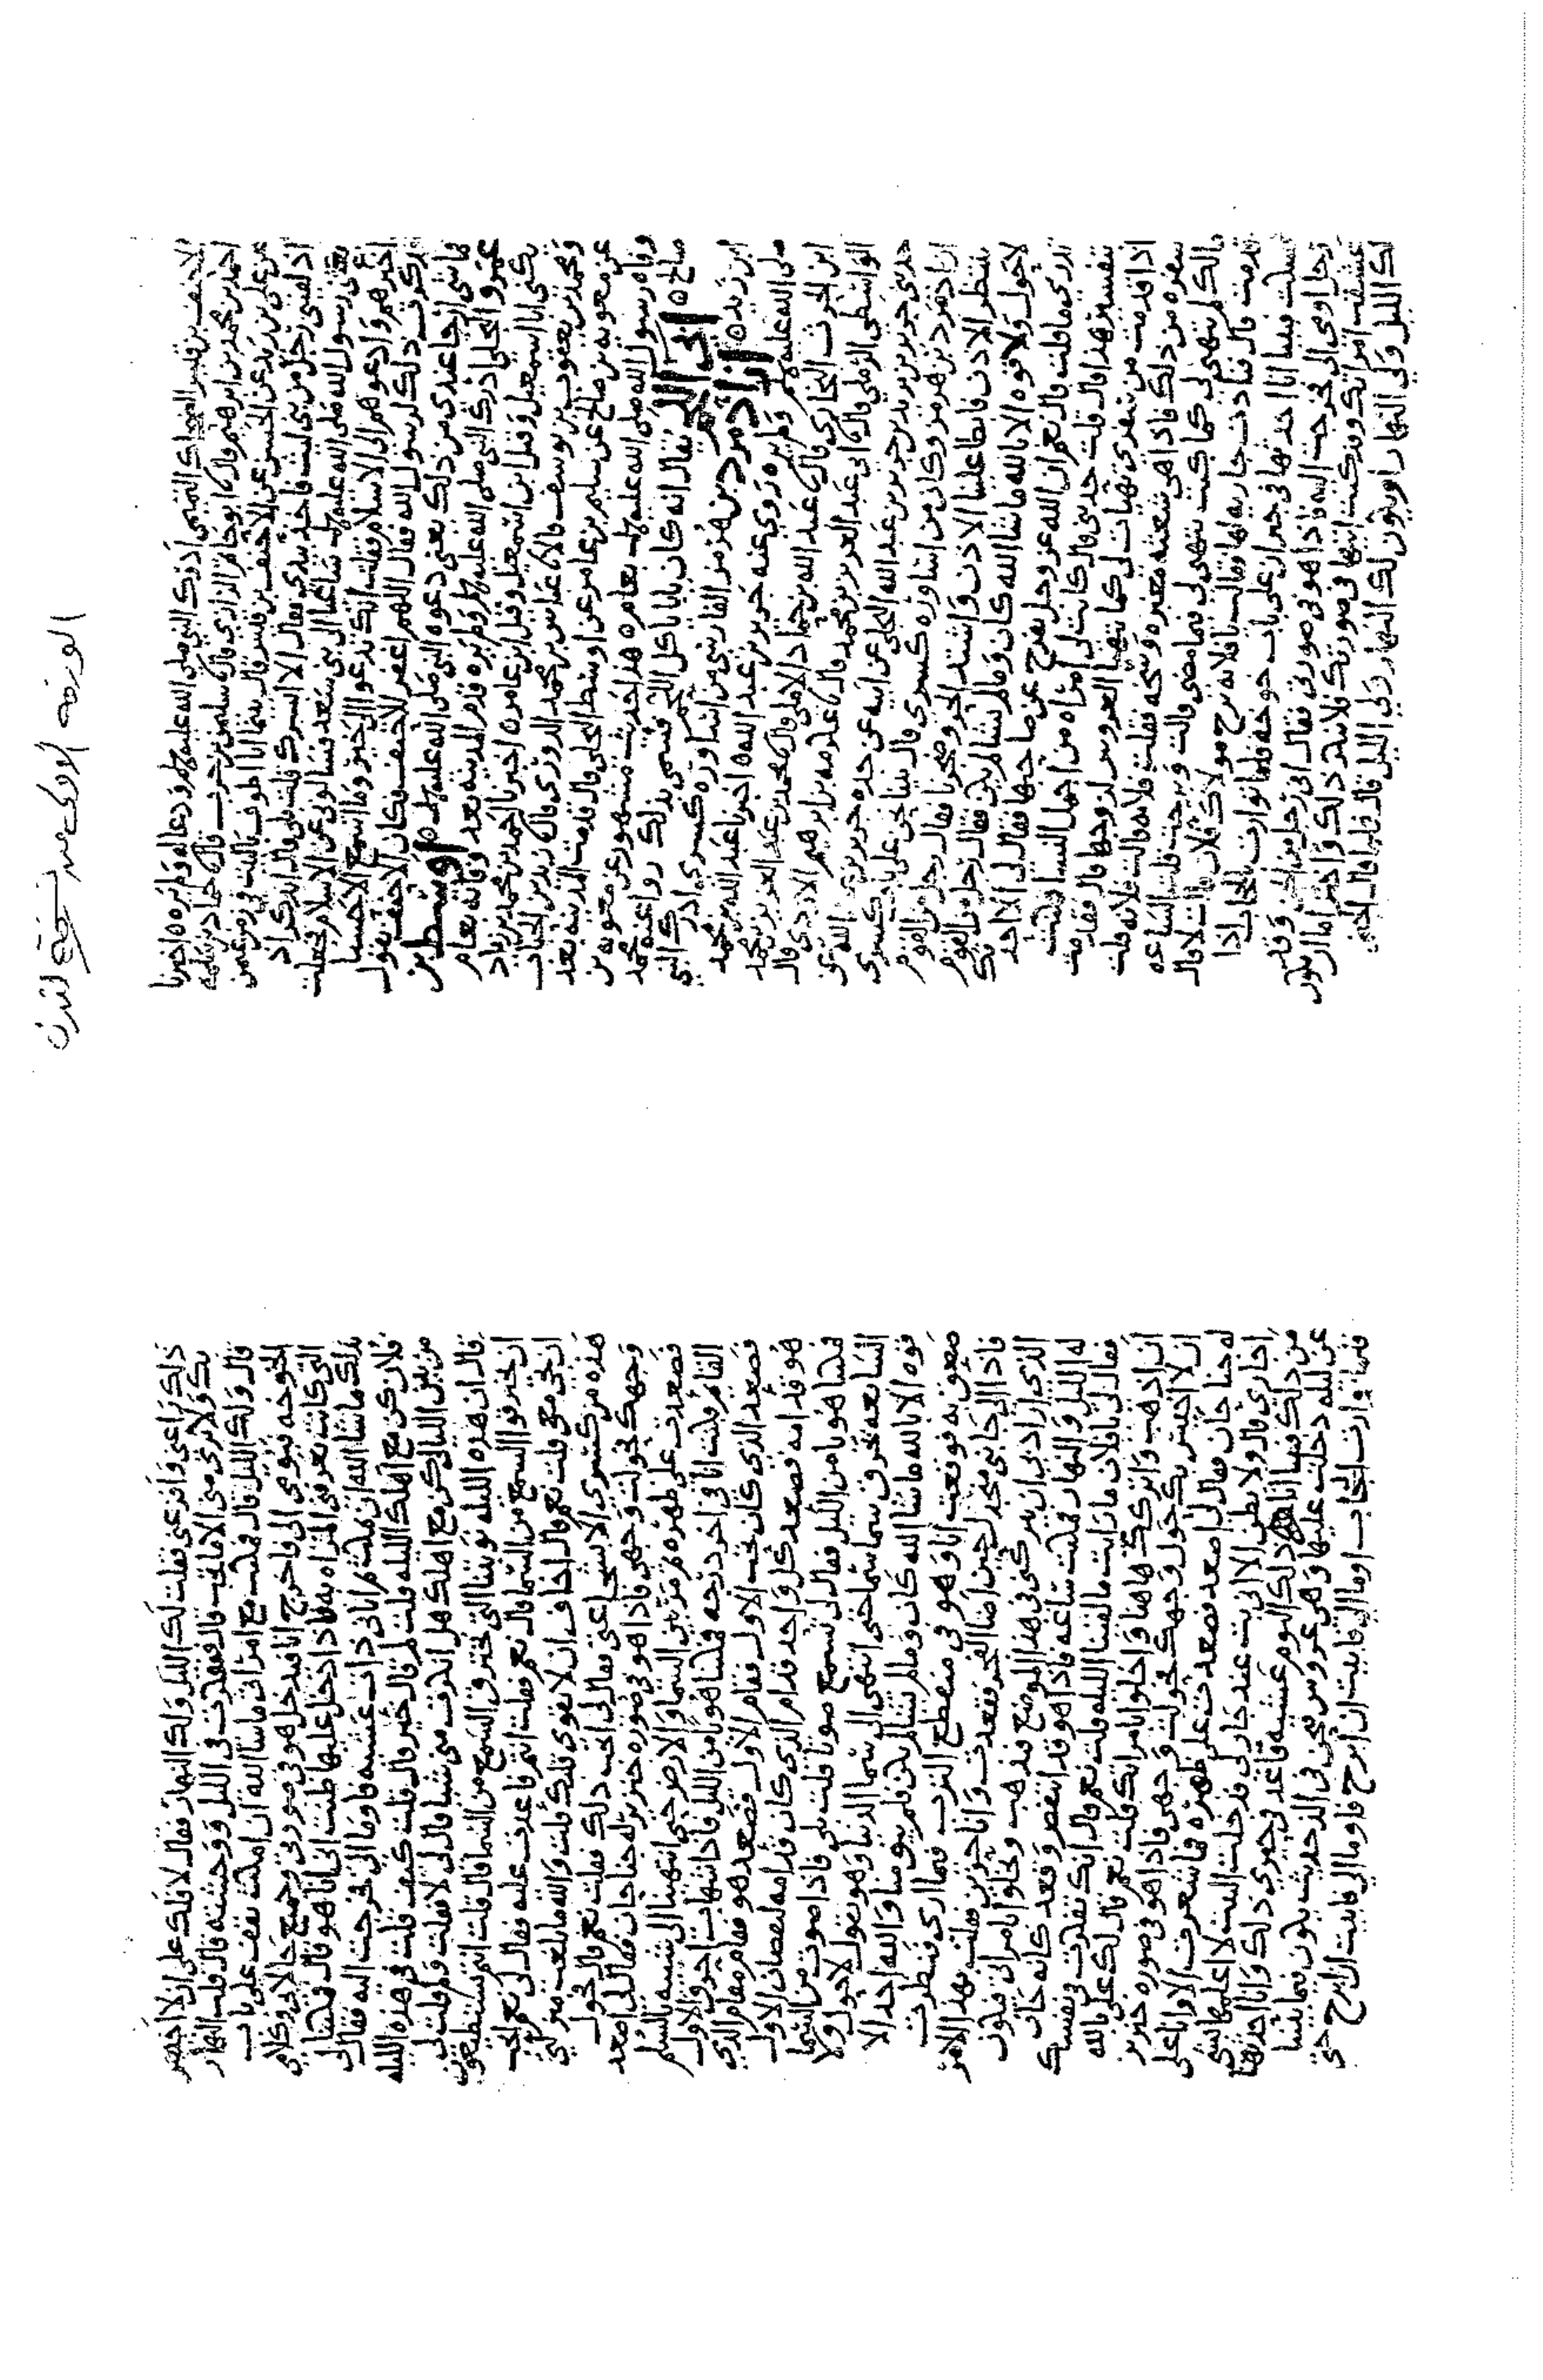 الورقة الاولى من نسخة لندن
الاحنف بن قيس الضحاك التميمي ادرك النبي صلى الله عليه وسلم ودعا له ولم يره اخبرنا
احمد بن محمد بن ابرهيم قال ابو حاتم الرازي قال سليمن بن حرب قال حماد بن سلمه
عن علي بن زيد عن الحسن عن الاحنف بن قيس قال بينما انا اطوف بالبيت في زمن عثمن
اذ لقيني رجل من بني ليث فاخذ بيدي فقال الا ابشرك قلت بلى قال اتذكر اذ
بعثني رسول الله صلى الله عليه وسلم ساعيا الى بني سعد فسالوني عن الاسلام فجعلت
اخبرهم وادعوهم الى الاسلام فقلت انك تدعوا الى الخير وما اسمع الا حسنا
فذكرت ذلك لرسول الله فقال اللهم اغفر للاحنف وكان الاحنف يقول
فما شي ارجا عندي من ذلك يعني دعوه النبي صلى الله عليه وسلم ه اوسط بن
عمرو البجلي ادرك النبي صلى الله عليه وسلم ولم يره قدم المدينه بعد وفاته بعام
يكنى ابا اسمعيل وقيل ابن اسمعيل وقيل ابن عامر ه اخبرنا احمد بن محمد بن زياد
ومحمد بن يعقوب بن يوسف قالا عباس بن محمد الدوري قال زيد بن الحباب
عن معويه بن صالح عن سليم بن عامر عن اوسط البجلي قال قدمت المدينه بعد
وفاه رسول الله صلى الله عليه وسلم بعام ه هذا حديث مشهور عن معويه بن
صالح ه ابي اللحم يقال انه كان يابا كل اللحم فسمي بذلك روا عنه محمد
ابن زيد ه ازاذمرد بن هرمز الفارسي من اساوره كسرى ادرك النبي
صلى الله عليه وسلم ولم يره روى عنه جرير بن عبد الله ه اخبرنا عبد الله بن محمد
ابن الحرث البخاري قال عبد الله بن حماد الاملي قال محمد بن عبد العزيز بن محمد
الواسطي الرملي قال ابي عبد العزيز بن محمد قال علقمه بن ابرهيم الازدي قال
حدثني جرير بن يزيد بن جرير بن عبد الله البجلي عن ابيه عن جده جرير بن عبد الله عن
ازاذمرد بن هرمز وكان من اساوره كسرى قال بينا نحن على باب كسرى
ننتظر الاذن فابطا علينا الاذن واشتد الحر وضجرنا فقال رجل من القوم
لا حول ولا قوه الا بالله ما شا الله كان وما لم يشا لم يكن فقال رجل من القوم
تدري ما قلت قال نعم ان الله عز وجل يفرج عن صاحبها فقال لي الا احدثك
بتفسير هذا قال قلت حدثني قال كانت لي امراه من اجمل النسا وكنت
اذا قدمت من سفري تهيات لي كما تتهيا العروس لزوجها قال فقدمت
سفره من ذلك فاذا هي شعثه مغبره وسخه فقلت فلانه قالت فلانه قلت
مالك لم تتهيي لي كما كنت تتهيي لي فيما مضى قالت وبرحت قلت الساعه
قدمت قال فنادت جاريه لها فقالت يا فلانه برح مولاك فلان قالت لا قال
فسكت فبينا انا احدثها في على باب خوخه فلما توارت بالحجاب اذا
رجل اومى الي فخرجت اليه فاذا هو في صورتي فقال اني رجل من الجن وقد
عشقت امراتك وقد كنت اتيتها في صورتك فلا تنكر ذلك واختر اما ان يكون
لك الليل ولي النهار او يكون لك النهار ولي الليل قال فلما قال اختر
ذلك راعني وافزعني فقلت لك الليل ولك النهار فقال لا فلك علي ان لا
بك ولا ترى مني الا ما تحب قال ففكرت في الليل ووحشته قال قلت النهار
قال ولك الليل قال فمكث مع امراتي ما شا الله ان يمكث يقف على باب
الخوخه فيومي الي فاخرج انا فيدخل هو في صورتي وجميع حالاتي وكلامي
التي كانت تعرفني المراه به فاذا دخل عليها ظنت اني انا هو قال فمكثنا
بذلك ما شا الله ان نمكث ثم اتاني ذات عشيه فاوما الي فخرجت اليه فقال
فلان كن مع اهلك الليله قلت لم قال خير قال قلت كيف قلت في هذه الليله
من بين الليالي كن مع اهلك هل انكرت مني شيا قال لي لا فقلت ولم قلت لي
قال ان هذه الليله نوبتنا التي نسترق السمع من السما قال قلت انتم تستطيعون
ان تسترقوا السمع من السما قال نعم فقلت انتم فاعدت عليه فقال لي نعم اتحب
ان تجي معي قلت نعم قال اخاف ان لا يقوى قلبك قلت والله ما بلغت منزلتي
هذه من كسرى الا بشجاعتي فقال لي اتحب ذلك فقلت نعم قال فحول
وجهك فحولت وجهي فاذا هو في صوره خنزير له جناحان فقال لي اصعد
فصعدت على ظهره ثم مر بين السما والارض حتى انتهينا الى شبيه بالسلم
القائم فكنت انا في اخر درجه فمكثنا هويا من الليل فاذا شهاب احرق الاول
فصعد الذي كان تحت الاول فقام الاول فصعد هو فقام مقام الذي
هو قدامه فصعد كل واحد قدام الذي كان قدامه لنقصان الاول
فمكثنا هويا من الليل فقال لي تسمع صوتا قلت بلى فاذا صوت من السما
السابعه يخرق سما سما حتى انتهى الى سما الدنيا وهو يقول لا حول ولا
قوه الا بالله ما شا الله كان وما لم يشا لم يكن فلم يبق منا والله احد الا
صعق به فوقعت انا وهو في منقطع الترب فما ارى فنظرت
فاذا الى جانبي منجدل حين اضا الفجر فقعدت وانا حزين فقلت بهذا الامر
الذي اراد بي ان يتركني في هذا الموضع فيذهب ويخلو بامراتي فيكون
له الليل والنهار فمكثت ساعه فاذا هو قد انتفض وقعد كانه جان
فقال لي يا فلان ما رايت ما لقينا الليله قلت نعم قال انك تفكرت في نفسك
اني اذهب واتركك هاهنا واخلو بامراتك قلت نعم قال لك علي بالله
ان لا اخيس بك حول وجهك فحولت وجهي فاذا هو في صوره خنزير
له جناحان فقال لي اصعد فصعدت على ظهره فما شعرت الا وانا على
اجاري قال ولا يظن الا اني بت عند جار لي فدخلت البيت لا اعلمها بشي
من ذلك فبينا انا ذلك اليوم عشيه قاعد في حيري ذلك وانا احدثها
عن ليله دخلت عليها وهي عروس نحن في الحديث يكون فيما بيننا
فلما توارت الحجاب اوما الي فابيت ان ابرح فاوما الي فابيت ان ابرح حتى